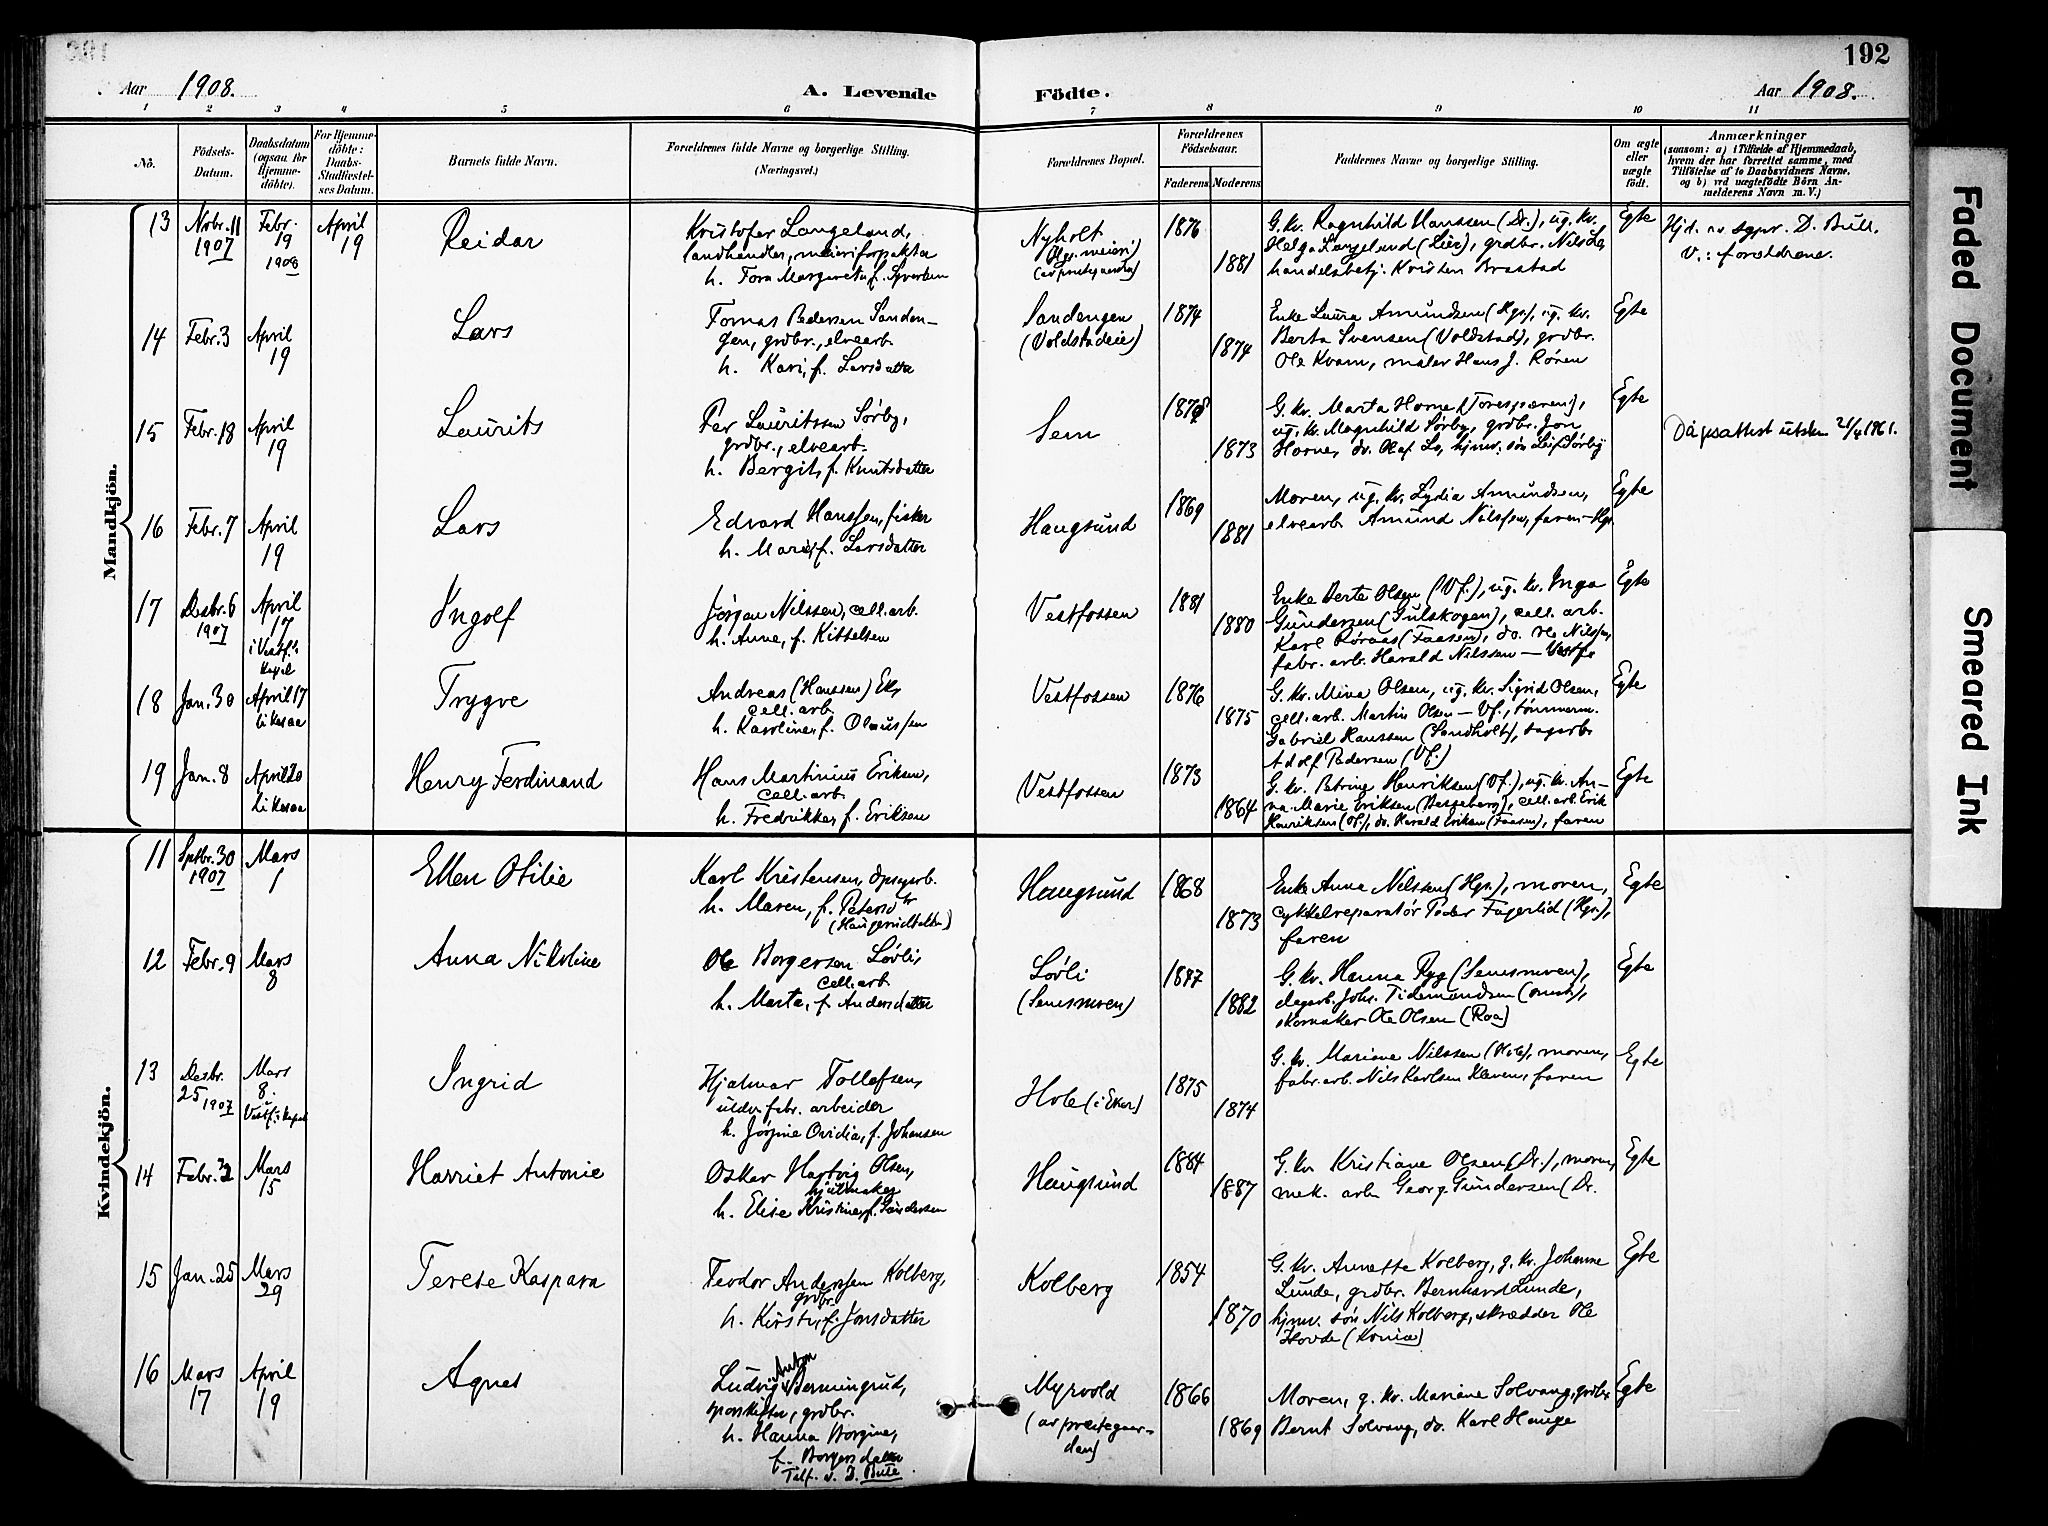 192
Aar 1908.
A. Levende Födte.
Aar 1908.
1 2 3 4 5 6 7 8 9 10 11
No.
Födsels-Datum.
Daabsdatum (ogsaa for Hjemme-döbte).
For Hjemme-döbte: Daabs-Stadfæstel-ses Datum.
Barnets fulde Navn.
Forældrenes fulde Navne og borgerlige Stilling. (Næringsvei.)
Forældrenes Bopæl.
Forældrenes Födselsaar.
Faderens. Moderens.
Faddernes Navne og borgerlige Stilling.
Om ægte eller uægte födt.
Anmærkninger
(saasom: a) i Tilfælde af Hjemmedaab,
hvem der har forrettet samme, med
Tilföielse af to Daabsvidners Navne,
og b) ved uægtefödte Börn An-
melderens Navn m. V.)
Mandkjön.
13 Novbr. 11 1907 Febr. 19 1908 April 19 Reidar
Kristofer Langeland,
landhandler, meieriforpakter
h. Tora Margareta f. Syvertsen
Nyholt
Hgs. meieri
1876 1881
G. kv. Ragnhild Hanssen (Dr.), ug. kv.
Helga Langeland (Lier), grdbr. Nils Lo,
handelsbetj. Kristen Braatad
Egte
Hjd. av sgpr. D. Bull.
V.: forældrene.
14 Febr. 3 April 19 Lars
Tomas Pedersen Sanden-
gen, grdbr., elvearb.
h. Kari, f. Larsdatter
Sandengen
(Voldstadeie)
1874 1874
Enke Laura Amundsen (Hgs.), ug. kv.
Berta Svensen (Voldstad), grdbr.
Ole Kvam, maler Hans J. Røren
Egte
15 Febr. 18 April 19 Laurits
Per Lauritssen Sørby,
grdbr., elvearb.
h. Bergit, f. Knutsdatter
Sem
1878 1873
G. kv. Marta Horne,
ug. kv. Magnhild Sørby, grdbr. Jon
Horne, do. Olaf Lo, hjmv. søn Leif Sørby
Egte
Dåpsattest utsten 21/4 1961.
16 Febr. 7 April 19 Lars
Edvard Hanssen, fisker
h. Marie, f. Larsdatter
Haugsund
1869 1881
Moren, ug. kv. Lydia Amundsen,
elvearb Amund Nilssen, faren — Hgs
Egte
17 Desbr. 6 1907 April 17 i Vestf. kapel Ingolf
Jørgen Nilssen, cell. arb.
h. Anne, f. Kittelsen
Vestfossen
1881 1880
Enke Berte Olsen (Vf.), ug. kv. Inga
Gundersen (Gulskogen), cell. arb.
Karl Røraas (Faasen), do. Ole Nilssen,
fabr. arb. Harald Nilssen — Vestf.
Egte
18 Jan. 30 April 17 likesaa Trygve
Andreas (Hanssen) Ek,
cell. arb.
h. Karoline, f. Olaussen
Vestfossen
1876 1875
G. kv. Mina Olsen, ug. kv. Sigrid Olsen,
cell. arb. Martin Olsen — Vf., tømmerm.
Gabriel Hanssen (Sandholt), sagarb.
Adolf Pedersen (Vf.)
Egte
19 Jan. 8 April 20 likesaa Henry Ferdinand
Hans Martinius Eriksen,
cell. arb.
h. Fredrikke, f. Eriksen
Vestfossen
1873 1864
G. kv. Petrine Henriksen (Vf.), ug. kv. An-
na Marie Eriksen, cell. arb. Erik
Henriksen (Vf.), do. Harald Eriksen (Faasen), faren
Egte
Kvindekjön.
11 Septbr. 30 1907 Mars 1 Ellen Otilie
Karl Kristensen, dpsagarb.
h. Maren, f. Petersdtr
Haugsund
1868 1873
Enke Anna Nilssen (Hgs.), moren,
cykkelreparatør Peder Fagerlid (Hgs.),
faren
Egte
12 Febr. 9 Mars 8 Anna Nikoline
Ole Borgersen Løvli,
cell. arb
h. Marta, f. Andersdatter
Løvli
(Semsmoen)
1887 1882
G. kv. Hanna Ryg (Semsmoen),
dagarb. Johs. Tidemandsen,
skomaker Ole Olsen (Roa)
Egte
13 Desbr. 25 1907 Mars 8. Vestf. kapel Ingrid
Hjalmar Tollefsen,
uldv. fabr. arbeider
h. Jørgine Ovidia, f. Johansen
Hole (i Eker)
1875 1874
G. kv. Mariane Nilssen (Hole), moren,
fabr. arb. Nils Karlsen Kleven, faren
Egte
14 Febr. 2 Mars 15 Harriet Antonie
Oskar Hartvig Olsen,
hjulmaker
h. Elise Kristine, f. Gundersen
Haugsund
1884 1887
G. kv. Kristiane Olsen (Dr.), moren,
mek. arb Georg Gundersen (Dr.
Egte
15 Jan. 25 Mars 29 Terese Kaspara
Teodor Anderssen Kolberg,
grdbr.
h. Kirsti, f. Jonsdatter
Kolberg
1854 1870
G. kv. Annette Kolberg, g. kv. Johanne
Lunde, grdbr. Bernhard Lunde,
hjmv. søn Nils Kolberg, skrædder Ole
Hovde
Egte
16 Mars 17 April 19 Agnes
Ludvig Anton Bermingrud,
sporskifter, grdbr.
h. Hanna Borgine,
f. Borgersdatter
Telf. v. D. Bull
Myrvold
(av prestegaar-
den)
1866 1869
Moren, g. kv. Mariane Solvang, grdbr.
Bernt Solvang, do. Karl Hauge
Egte
Faded Document
Smeared Ink